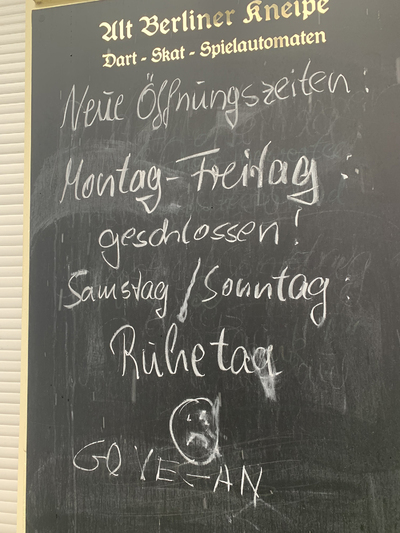 Alt Berliner Kneipe
Dart - Skat - Spielautomaten
Neue Öffnungszeiten:
Montag-Freitag:
geschlossen!
Samstag/Sonntag:
Ruhetag
GO VEGAN